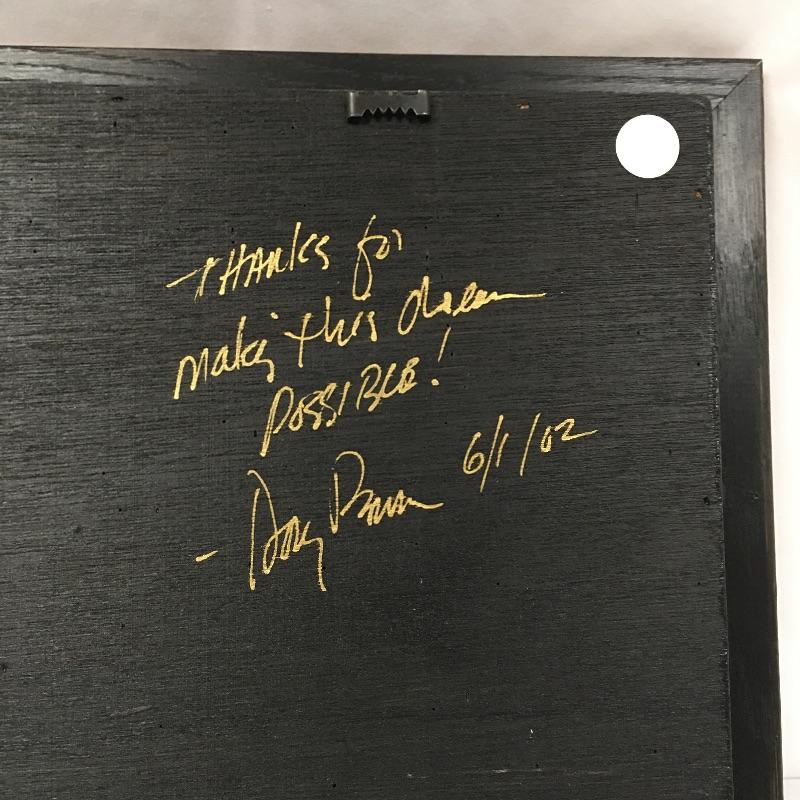 THANKS for
making this dream
POSSIBLE!
- Doug 6/1/02